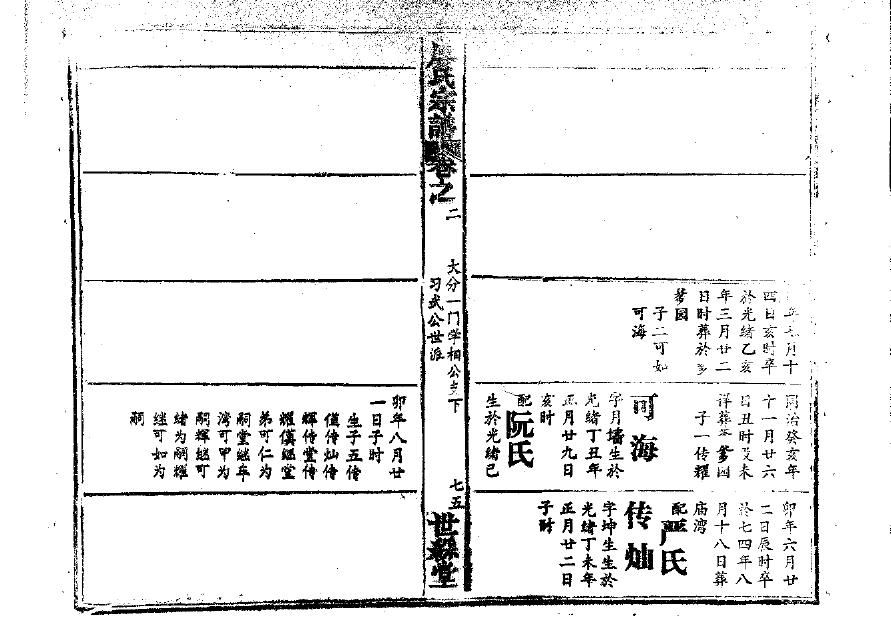 年七月十
四日亥时卒
於光绪乙亥
年三月廿二
日时葬於
园
子二可如
可海
同治癸亥年
十一月廿六
日丑时殁未
详葬 园
子一传耀
可海
字月墙生於
光绪丁丑年
正月廿九日
亥时
配阮氏
生於光绪己
卯年六月廿
二日辰时卒
於七四年八
月十八日葬
庙湾
配严氏
传灿
字坤生生於
光绪丁未年
正月廿二日
子时
氏宗谱
卷之二
大分一门学相公 下
习武公世派
七五
世彩堂
卯年八月廿
一日子时
生子五传
值传灿传
辉传堂传
耀儀继堂
弟可仁为
嗣堂继年
湾可甲为
嗣辉继可
绪为嗣耀
继可如为
嗣